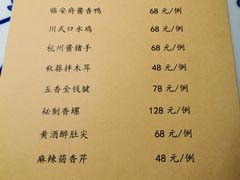 临安府酱香鸭 68 元/例
川式口水鸡 68 元/例
杭州酱猪手 68 元/例
秋葵拌木耳 48 元/例
五香金钱腱 78 元/例
秘制香螺 128 元/例
黄酒醉肚尖 68 元/例
麻辣茴香芹 48 元/例